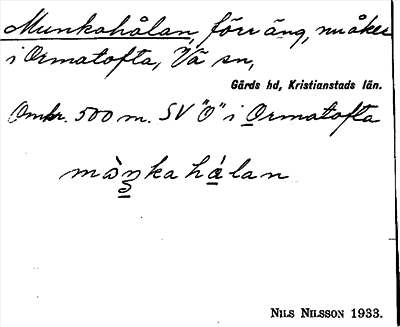 Munkahålan, förr äng, nu åker
i Ormatofta, Vä sn,
Gärds hd, Kristianstads län.
Omkr. 500 m. SV "O" i Ormatofta
hálan
NILS NILSSON 1933.